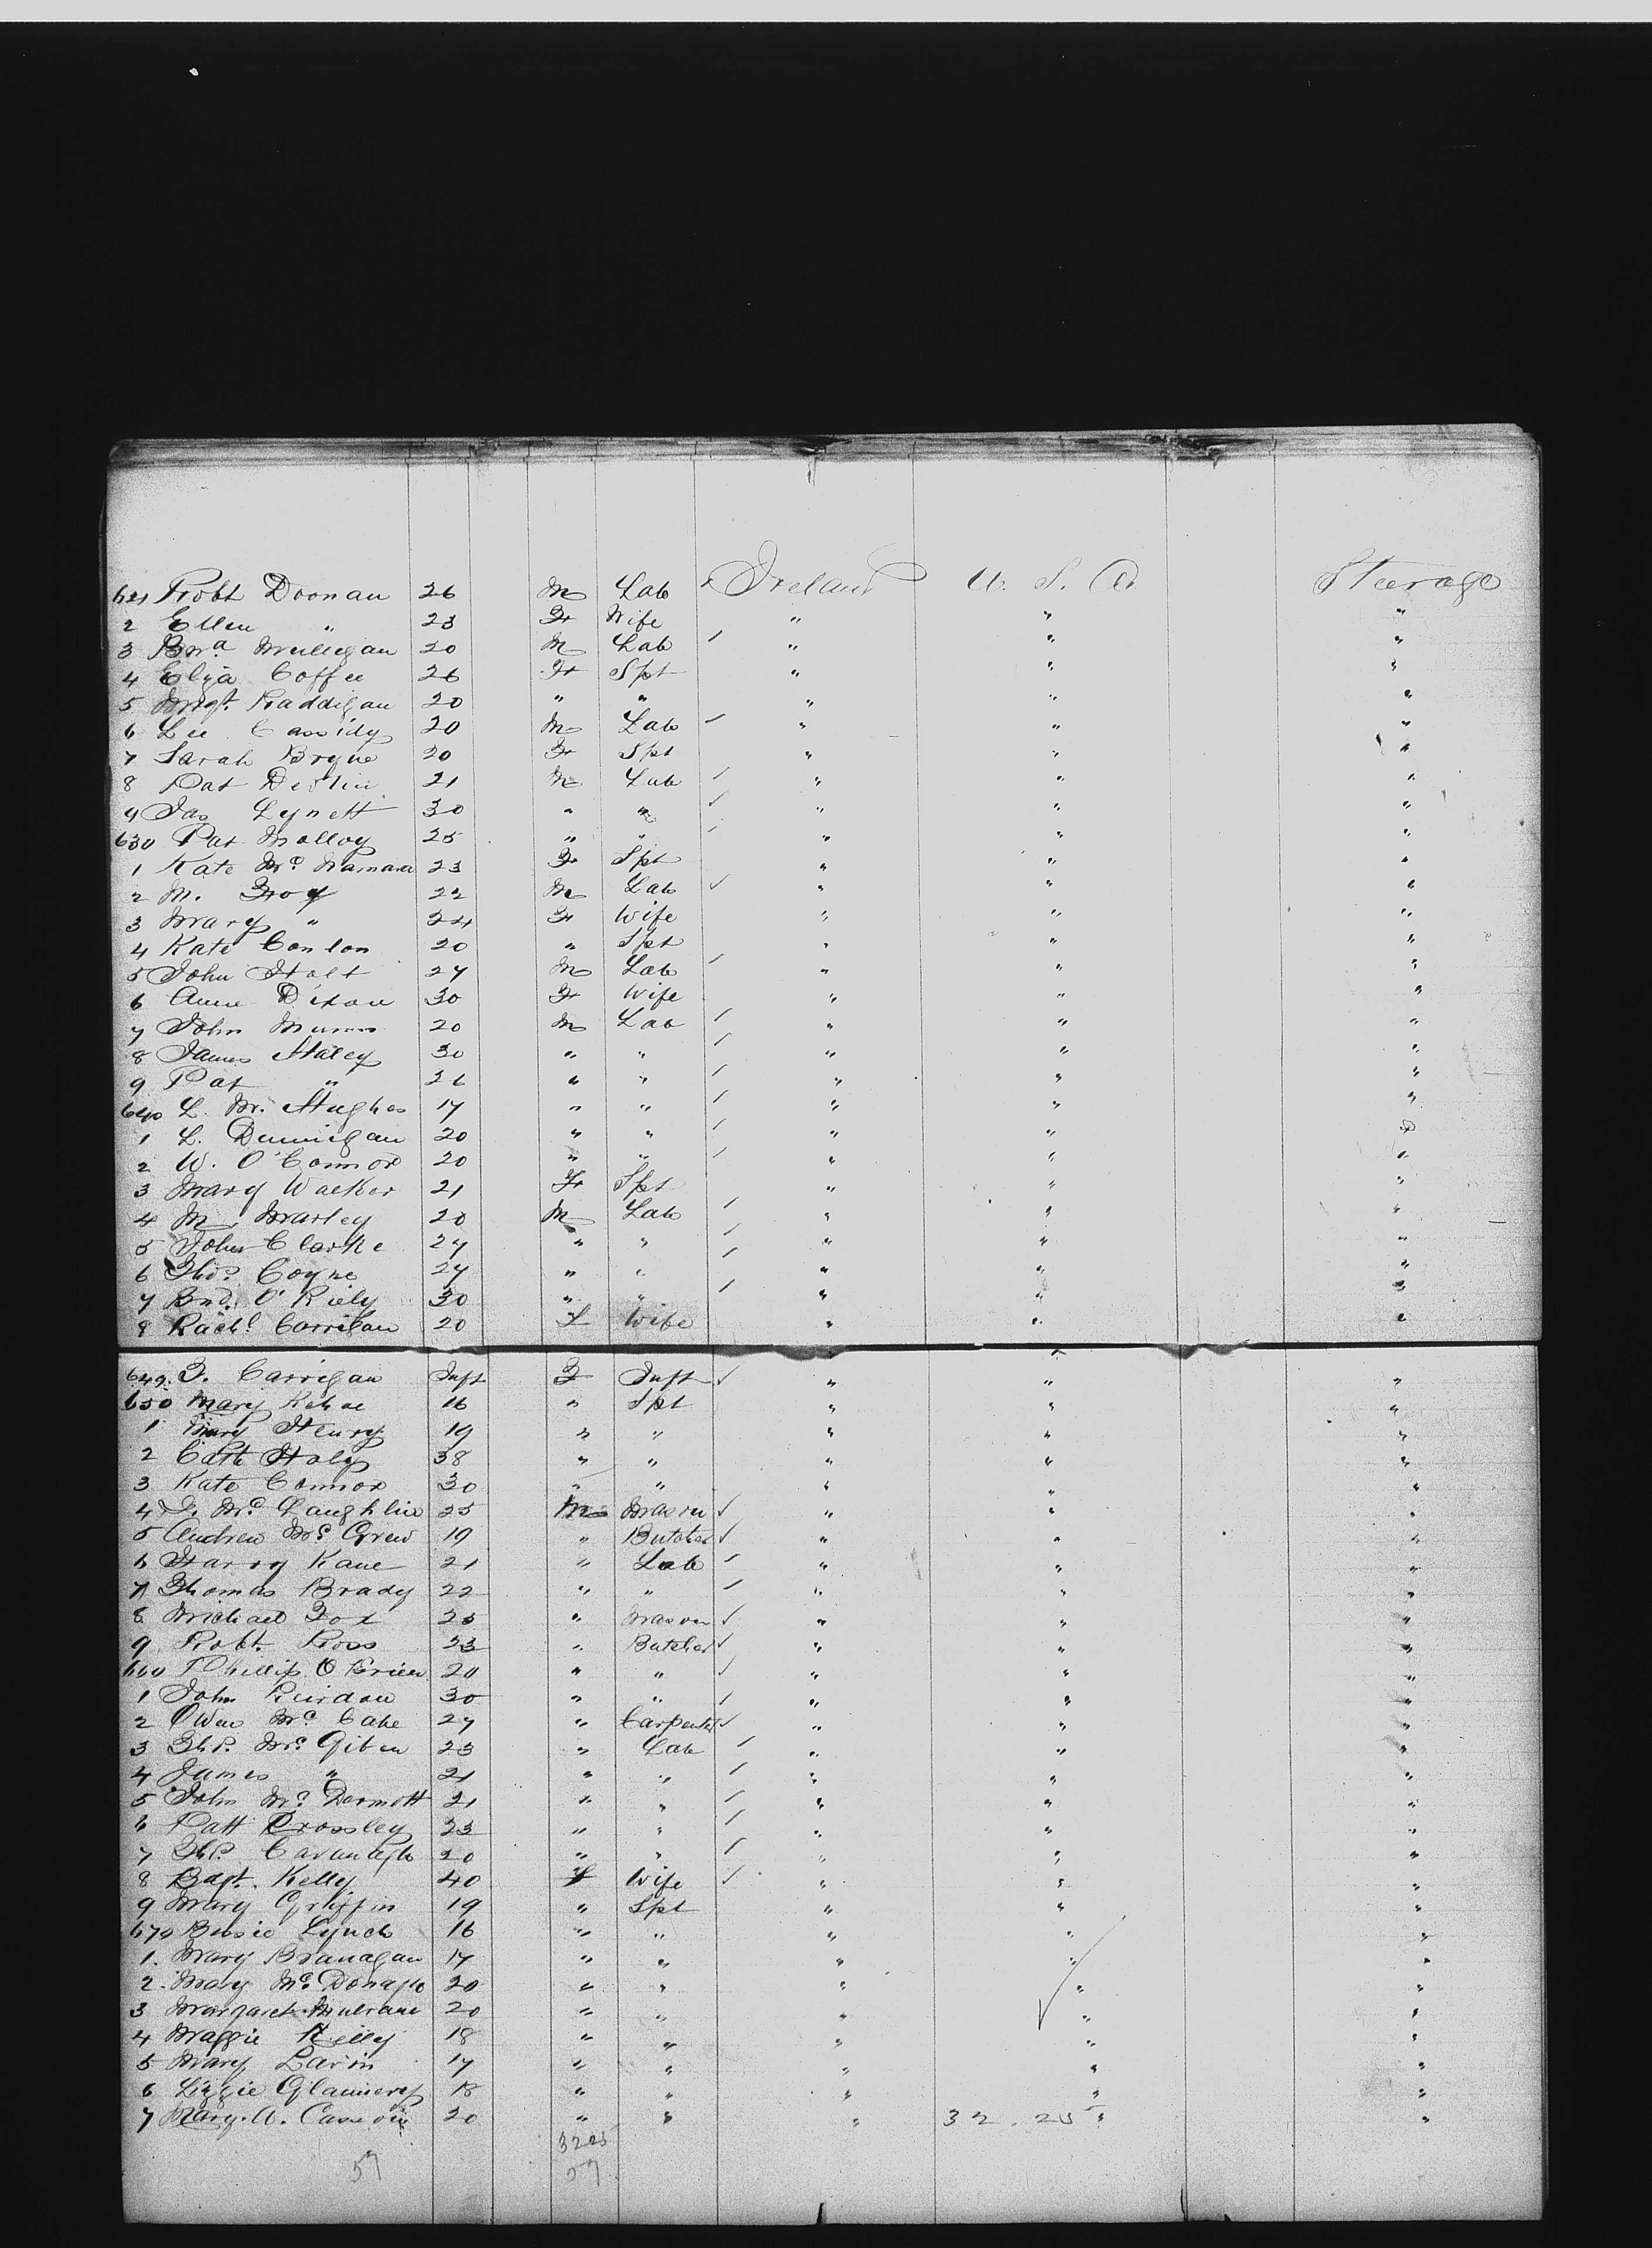 621 Robt Doonan 26 M Lab Ireland U. S. A. Steerage
2 Ellen " 23 F Wife " " "
3 Bna Mulligan 20 M Lab " " "
4 Eliza Coffee 26 F Spt " " "
5 Mgt. Raddigan 20 " " " " "
6 Lee Cassidy 20 M Lab " " "
7 Sarah Bryne 20 F Spt " " "
8 Pat Devlin 21 M Lab " " "
9 Jas Lynett 30 " " " " "
630 Pat Molloy 25 " " " " "
1 Kate Mc Namara 23 F Spt " " "
2 M. Foy 22 M Lab " " "
3 Mary " 24 F Wife " " "
4 Kate Conlon 20 " Spt " " "
5 John Holt 27 M Lab " " "
6 Anne Dixon 30 F Wife " " "
7 John Munn 20 M Lab " " "
8 James Haley 30 " " " " "
9 Pat " 26 " " " " "
640 L. M. Hughes 17 " " " " "
1 L. Dunnigan 20 " " " " "
2 W. O'Connor 20 " " " " "
3 Mary Walker 21 F Spt " " "
4 M. Marley 20 M Lab " " "
5 John Clarke 27 " " " " "
6 Thos. Coyne 27 " " " " "
7 Bnd. O'Riely 30 " " " " "
8 Rachl Carrigan 20 F Wife " " "
649. F. Carrigan Inft F Inft " " "
650 Mary Kehoe 16 " Spt " " "
1 Mary Henry 19 " " " " "
2 Cath Haly 38 " " " " "
3 Kate Connor 30 " " " " "
4 Mc Laughlin 25 M Mason " " "
5 Andrew Mc Grew 19 " Butcher " " "
6 Harry Kane 21 " Lab " " "
7 Thomas Brady 22 " " " " "
8 Michael Fox 25 " Mason " " "
9 Robt. Ross 23 " Butcher " " "
660 Phillip O Brien 20 " " " " "
1 John Reirdon 30 " " " " "
2 Owen Mc Cabe 27 " Carpenter " " "
3 Ths. Mc Giben 23 " Lab " " "
4 James " 21 " " " " "
5 John Mc Dermott 21 " " " " "
6 Patt Crossley 23 " " " " "
7 Ths. Cavanagh 20 " " " " "
8 Bdgt. Kelly 40 F Wife " " "
9 Mary Griffin 19 " Spt " " "
670 Bessie Lynch 16 " " " " "
1. Mary Branagan 17 " " " " "
2. Mary Mc Donagh 20 " " " " "
3 Margaret Mulrane 20 " " " " "
4 Maggie Kelly 18 " " " " "
5 Mary Lavin 17 " " " " "
6 Lizzie Glannery 18 " " " " "
7 Mary. A. 20 " " " 32.25 " "
3225
57 57